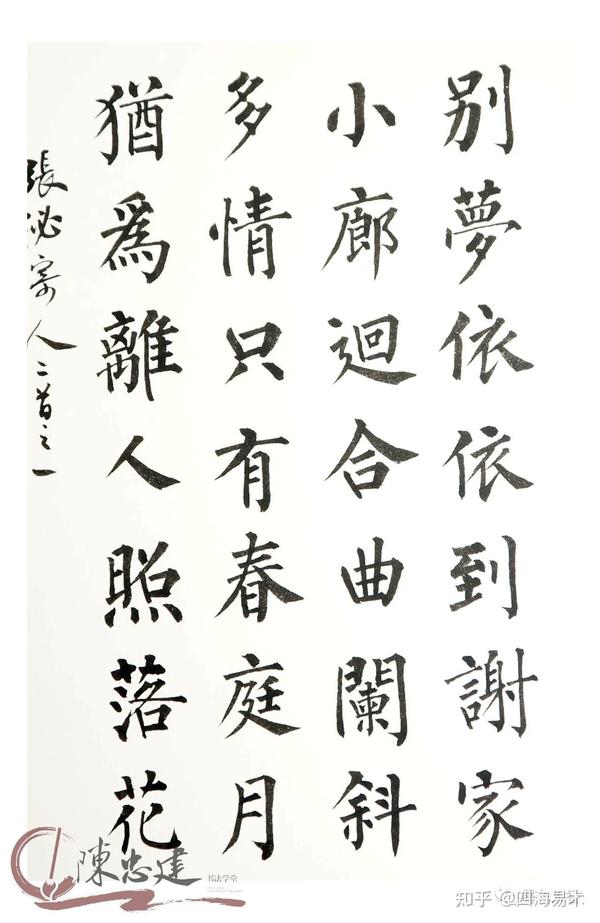 别夢依依到謝家
小廊迴合曲闌斜
多情只有春庭月
猶為離人照落花
張泌寄人二首之一
陳忠建
书法学堂
知乎 @四海易木